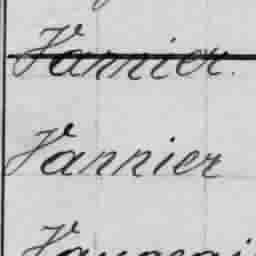 Varnier.
Vannier